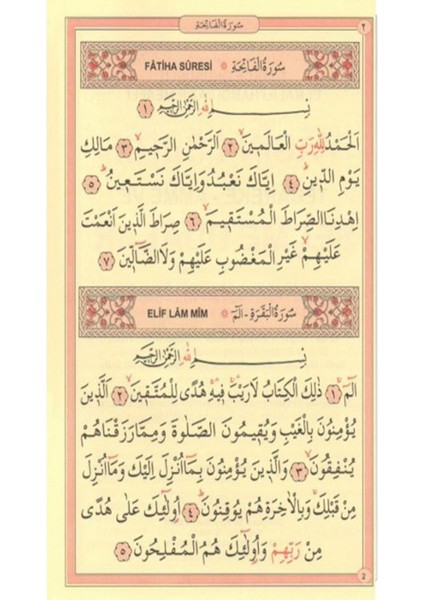 ٢
سُورَةُ الْفَاتِحَةِ
FÂTİHA SÛRESİ سُورَةُ الْفَاتِحَةِ
بِسْمِ اللّٰهِ الرَّحْمٰنِ الرَّحِيمِ ﴿١﴾
اَلْحَمْدُ لِلّٰهِ رَبِّ الْعَالَمِينَ ﴿٢﴾ اَلرَّحْمٰنِ الرَّحِيمِ ﴿٣﴾ مَالِكِ
يَوْمِ الدِّينِ ﴿٤﴾ اِيَّاكَ نَعْبُدُ وَاِيَّاكَ نَسْتَعِينُ ﴿٥﴾
اِهْدِنَا الصِّرَاطَ الْمُسْتَقِيمَ ﴿٦﴾ صِرَاطَ الَّذِينَ اَنْعَمْتَ
عَلَيْهِمْ غَيْرِ الْمَغْضُوبِ عَلَيْهِمْ وَلَا الضَّٓالِّينَ ﴿٧﴾
ELİF LÂM MÎM سُورَةُ الْبَقَرَةِ - الٓمٓ
بِسْمِ اللّٰهِ الرَّحْمٰنِ الرَّحِيمِ
الٓمٓ ﴿١﴾ ذٰلِكَ الْكِتَابُ لَا رَيْبَ فِيهِ هُدًى لِلْمُتَّقِينَ ﴿٢﴾ اَلَّذِينَ
يُؤْمِنُونَ بِالْغَيْبِ وَيُقِيمُونَ الصَّلٰوةَ وَمِمَّا رَزَقْنَاهُمْ
يُنْفِقُونَ ﴿٣﴾ وَالَّذِينَ يُؤْمِنُونَ بِمَٓا اُنْزِلَ اِلَيْكَ وَمَٓا اُنْزِلَ
مِنْ قَبْلِكَ وَبِالْاٰخِرَةِ هُمْ يُوقِنُونَ ﴿٤﴾ اُو۬لٰٓئِكَ عَلٰى هُدًى
مِنْ رَبِّهِمْ وَاُو۬لٰٓئِكَ هُمُ الْمُفْلِحُونَ ﴿٥﴾
2